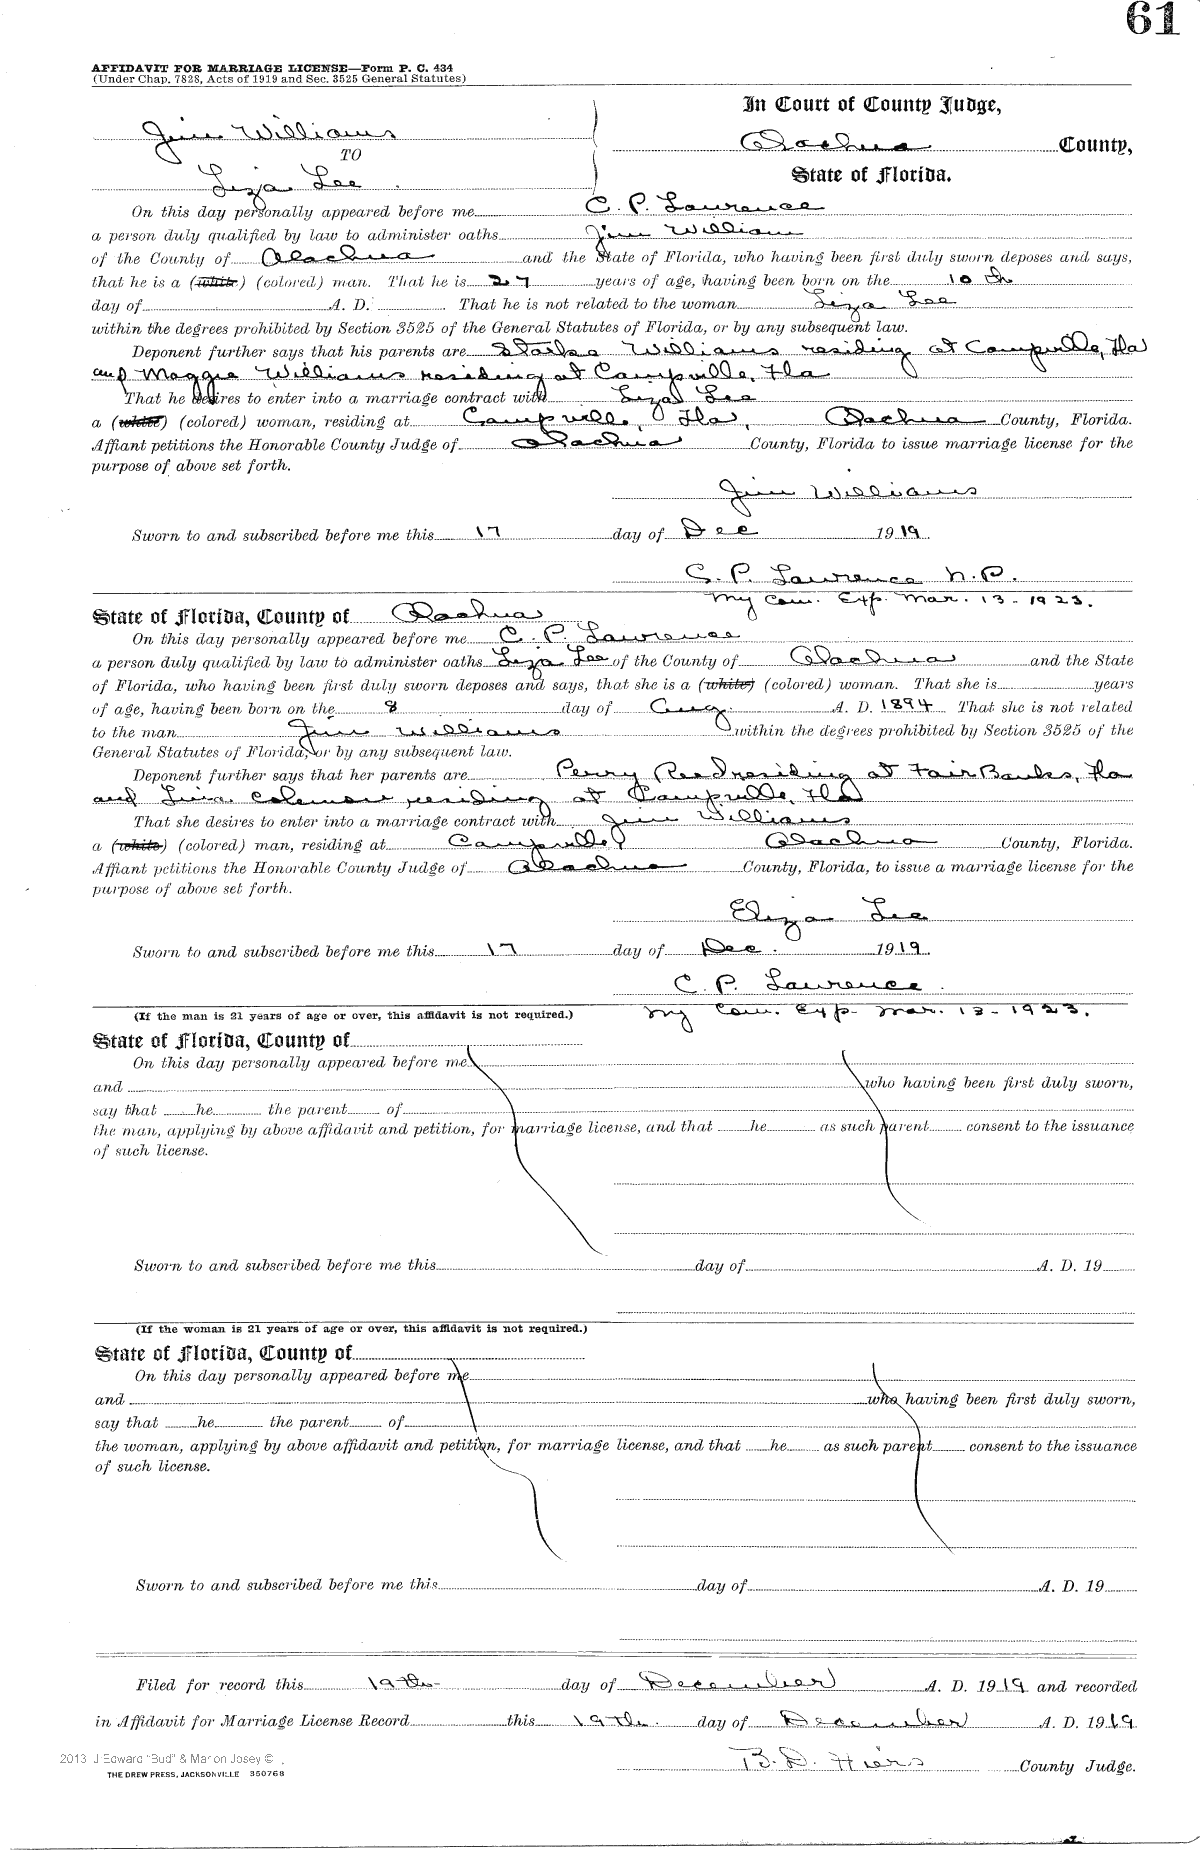 61
AFFIDAVIT FOR MARRIAGE LICENSE—Form P. C. 434
(Under Chap. 7828, Acts of 1919 and Sec. 3525 General Statutes)
In Court of County Judge,
Jim Williams
Alachua County,
TO
State of Florida.
Liza Lee.
On this day personally appeared before me C. P. Lawrence
a person duly qualified by law to administer oaths Jim William
of the County of Alachua and the State of Florida, who having been first duly sworn deposes and says,
that he is a (white) (colored) man. That he is 27 years of age, having been born on the 10th
day of A. D. That he is not related to the woman Liza Lee
within the degrees prohibited by Section 3525 of the General Statutes of Florida, or by any subsequent law.
Deponent further says that his parents are Williams residing at Campville, Fla
and Maggie Williams residing at Campville, Fla
That he desires to enter into a marriage contract with Liza Lee
a (white) (colored) woman, residing at Campville, Fla, Alachua County, Florida.
Affiant petitions the Honorable County Judge of Alachua County, Florida to issue marriage license for the
purpose of above set forth.
Jim Williams
Sworn to and subscribed before me this 17 day of Dec 1919
C. P. Lawrence N. P.
My Com. Exp. Mar. 13 - 1923.
State of Florida, County of Alachua
On this day personally appeared before me C. P. Lawrence
a person duly qualified by law to administer oaths Liza Lee of the County of Alachua and the State
of Florida, who having been first duly sworn deposes and says, that she is a (white) (colored) woman. That she is years
of age, having been born on the 8 day of Aug. A. D. 1894 That she is not related
to the man Jim Williams within the degrees prohibited by Section 3525 of the
General Statutes of Florida, or by any subsequent law.
Deponent further says that her parents are Perry Reed residing at FairBanks, Fla
and Coleman residing at Campville, Fla
That she desires to enter into a marriage contract with Jim Williams
a (white) (colored) man, residing at Campville, Alachua County, Florida.
Affiant petitions the Honorable County Judge of Alachua County, Florida, to issue a marriage license for the
purpose of above set forth.
Eliza Lee
Sworn to and subscribed before me this 17 day of Dec. 1919
C. P. Lawrence.
My Com. Exp. Mar. 13 - 1923.
(If the man is 21 years of age or over, this affidavit is not required.)
State of Florida, County of
On this day personally appeared before me
and who having been first duly sworn,
say that he the parent of
the man, applying by above affidavit and petition, for marriage license, and that he as such parent consent to the issuance
of such license.
Sworn to and subscribed before me this day of A. D. 19
(If the woman is 21 years of age or over, this affidavit is not required.)
State of Florida, County of
On this day personally appeared before me
and who having been first duly sworn,
say that he the parent of
the woman, applying by above affidavit and petition, for marriage license, and that he as such parent consent to the issuance
of such license.
Sworn to and subscribed before me this day of A. D. 19
Filed for record this 19th day of December A. D. 1919 and recorded
in Affidavit for Marriage License Record this 19th day of December A. D. 1919
B. D. Hiers County Judge.
2013 J Edward "Bud" & Marion Josey ©
THE DREW PRESS, JACKSONVILLE 350768